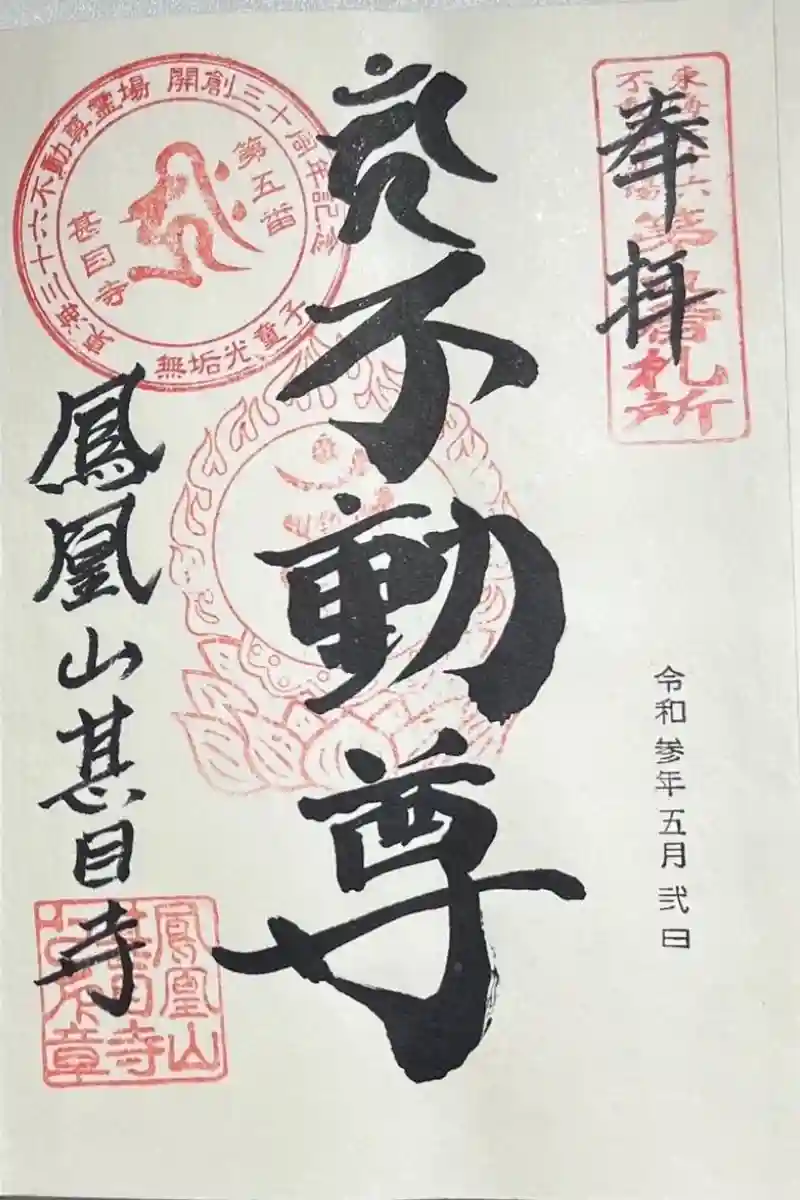 奉拝
東海三十六
不動尊霊場
第五番札所
令和参年五月弐日
不動尊
東海三十六不動尊霊場 開創三十周年記念
第五番
甚目寺
無垢光童子
鳳凰山甚目寺
鳳凰山
甚目寺